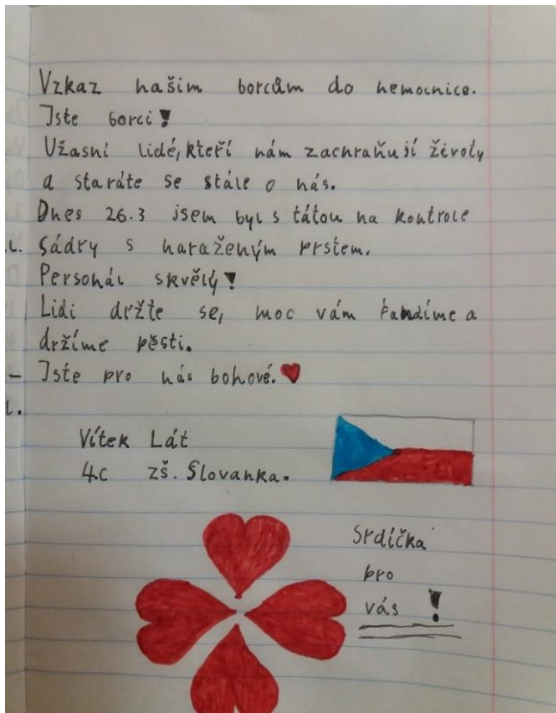 Vzkaz našim borcům do nemocnice.
Jste borci!
Užasní lidé, kteří nám zachraňují životy
a staráte se stále o nás.
Dnes 26.3 jsem byl s tátou na kontrole
sádry s naraženým prstem.
Personál skvělý!
Lidi držte se, moc vám fandíme a
držíme pěsti.
Jste pro nás bohové.
Vítek Lát
4c zš. Slovanka.
Srdíčka
pro
vás !